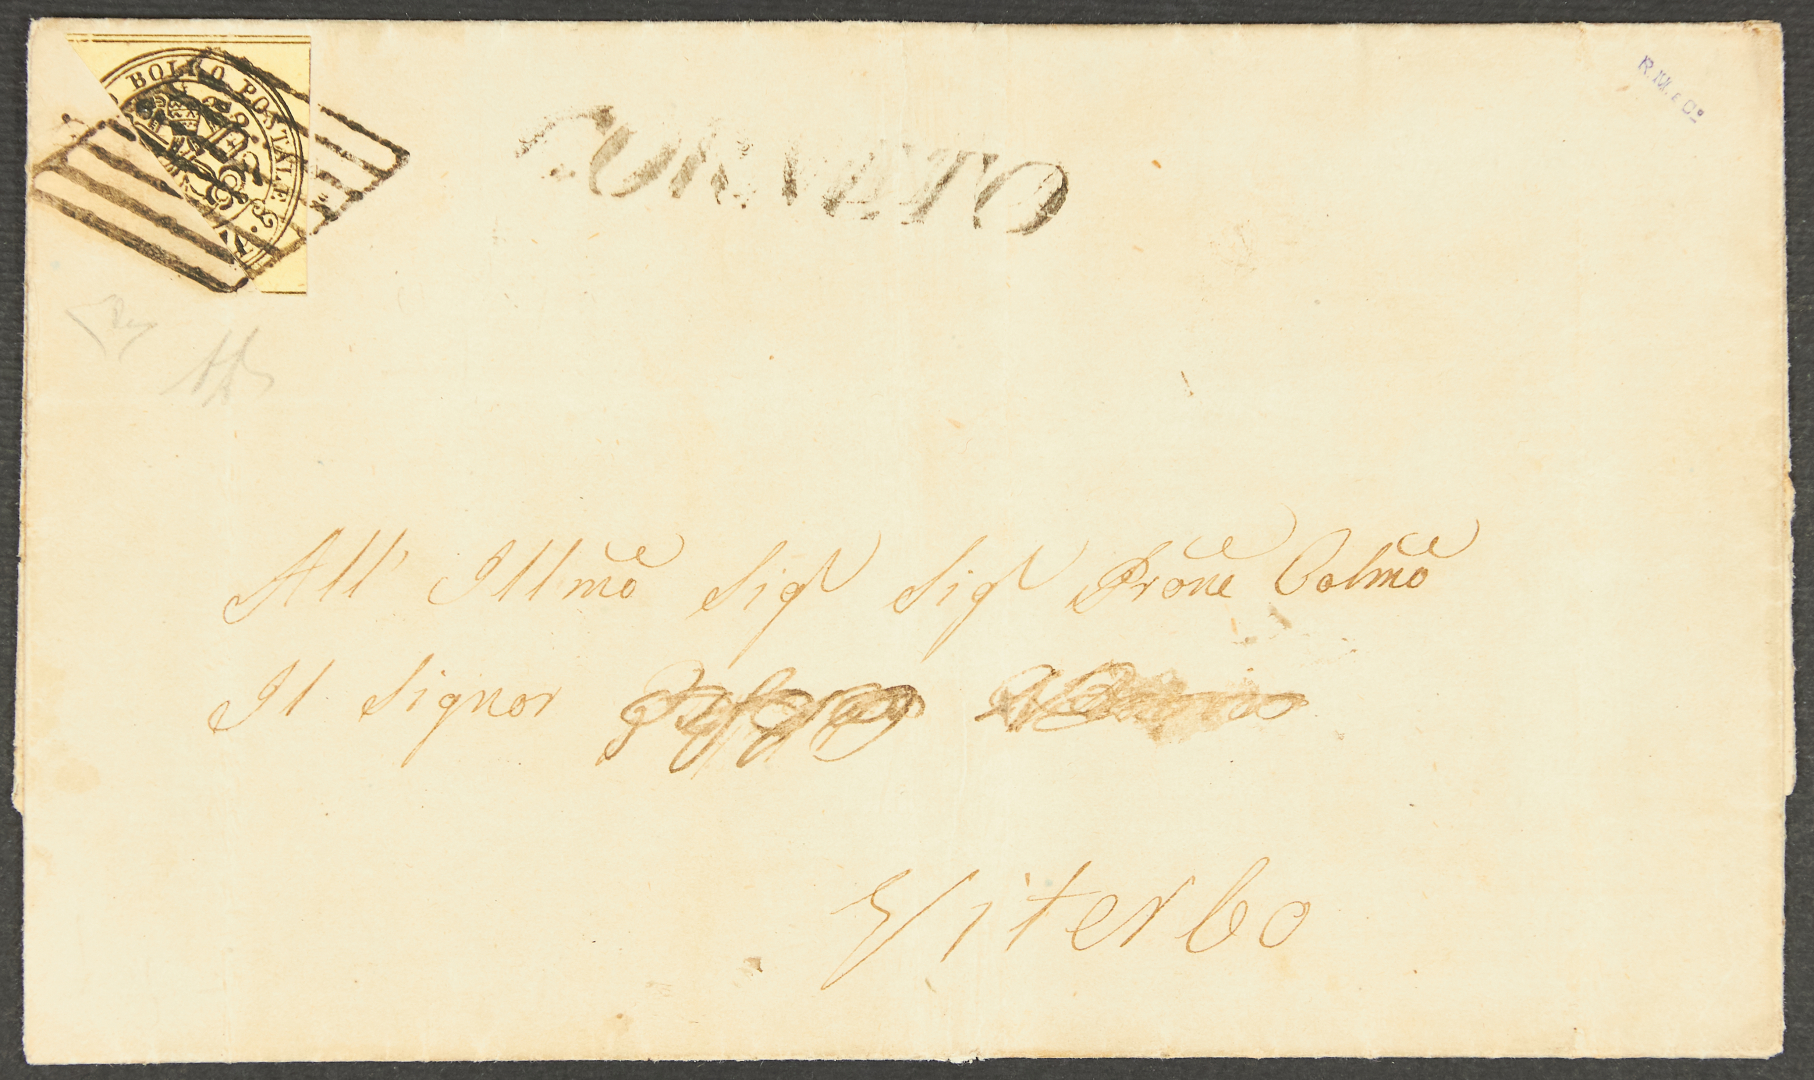 BOLLO POSTALE
CORNETO
R.M. e Co
All' Illmo Sigr Sigr Prone Colmo
Il Signor
Viterbo